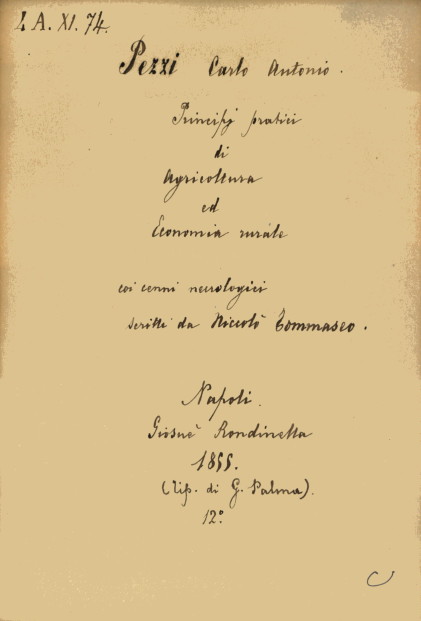 4 A. XI. 74.
Pezzi Carlo Antonio.
Principj pratici
di
Agricoltura
ed
Economia rurale
coi cenni necrologici
scritti da Niccolò Tommaseo.
Napoli.
Giosuè Rondinella
1855.
(Tip. di G. Palma).
12º
C